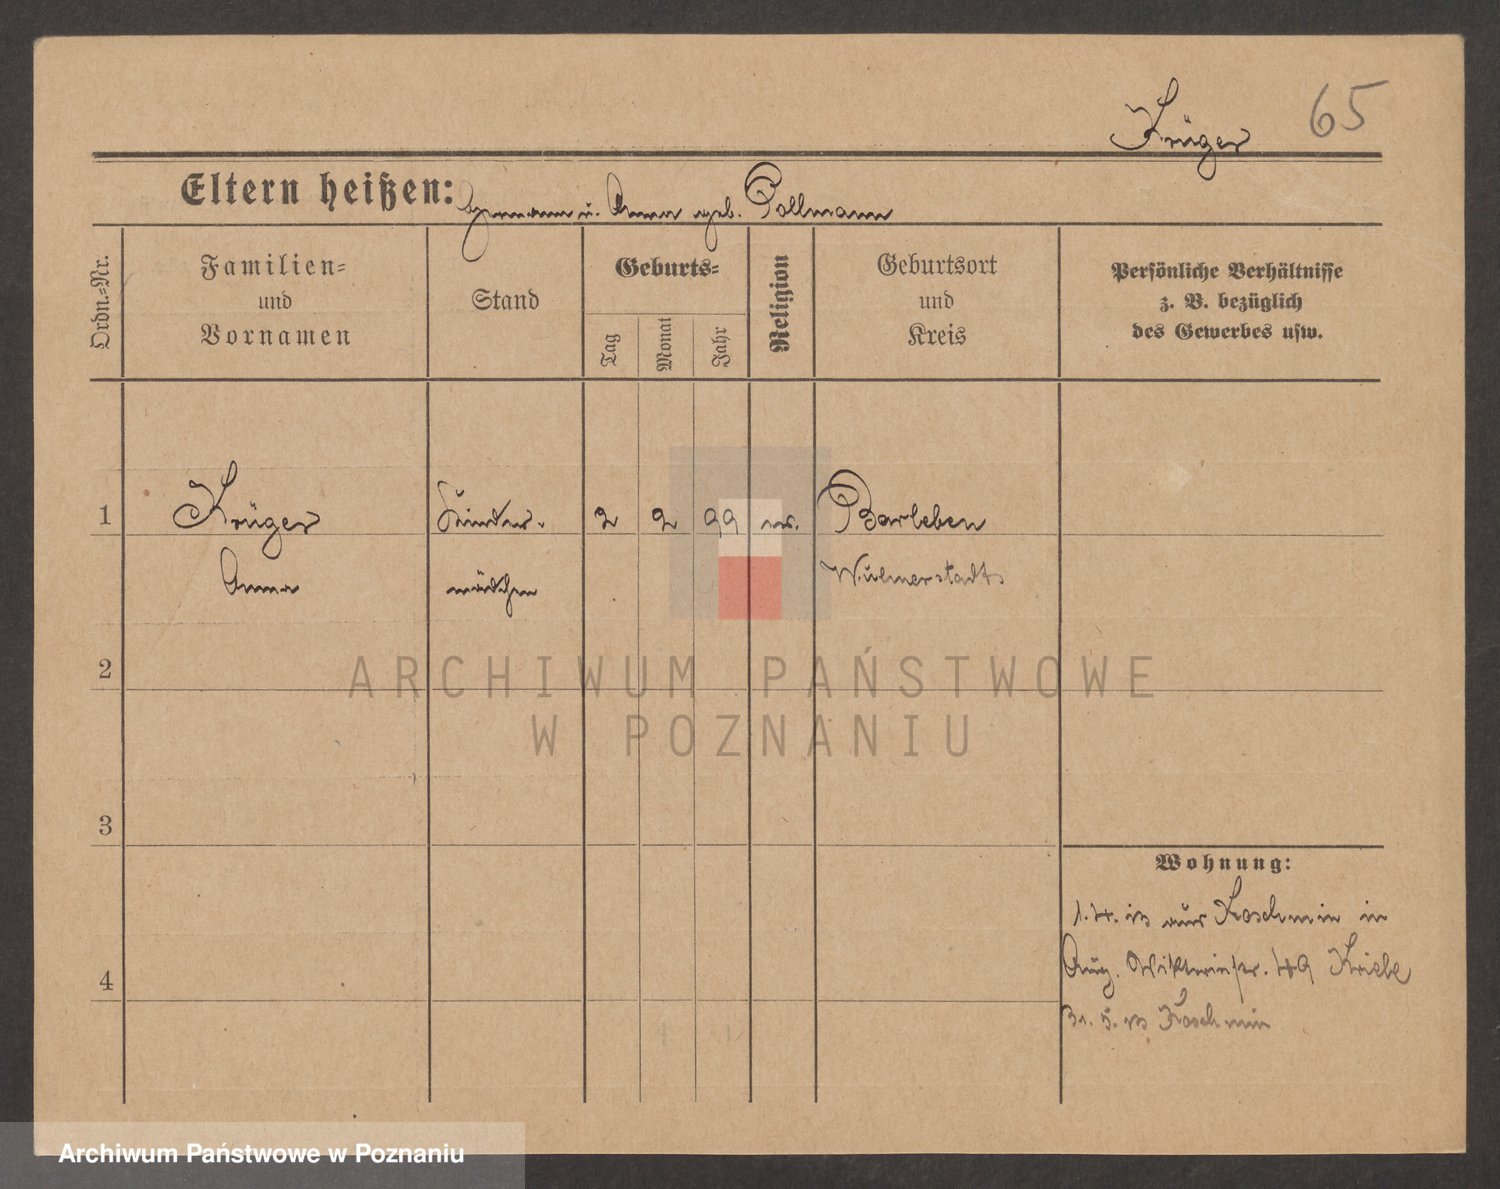 65
Krüger
Eltern heißen: Hermann u. Anna geb. Pollmann
Ordn.=Nr.
Familien=
und
Vornamen
Stand
Geburts=
Tag
Monat
Jahr
Religion
Geburtsort
und
Kreis
Persönliche Verhältnisse
z. B. bezüglich
des Gewerbes usw.
1 Krüger Kinder- 2 2 99 Barleben
Anna mädchen Wulmerstadt
2
3
4
Wohnung:
1.4. 13 aus Koschmin in
Aug. Viktoriastr. 49
31. 5. 13 Koschmin
ARCHIWUM PAŃSTWOWE
W POZNANIU
Archiwum Państwowe w Poznaniu